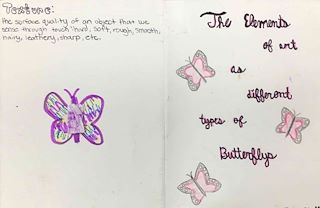 Texture:
the surface quality of an object that we
sense through touch hard, soft, rough, smooth,
hairy, leathery, sharp, etc.
The Elements
of art
as
different
types of
Butterflys